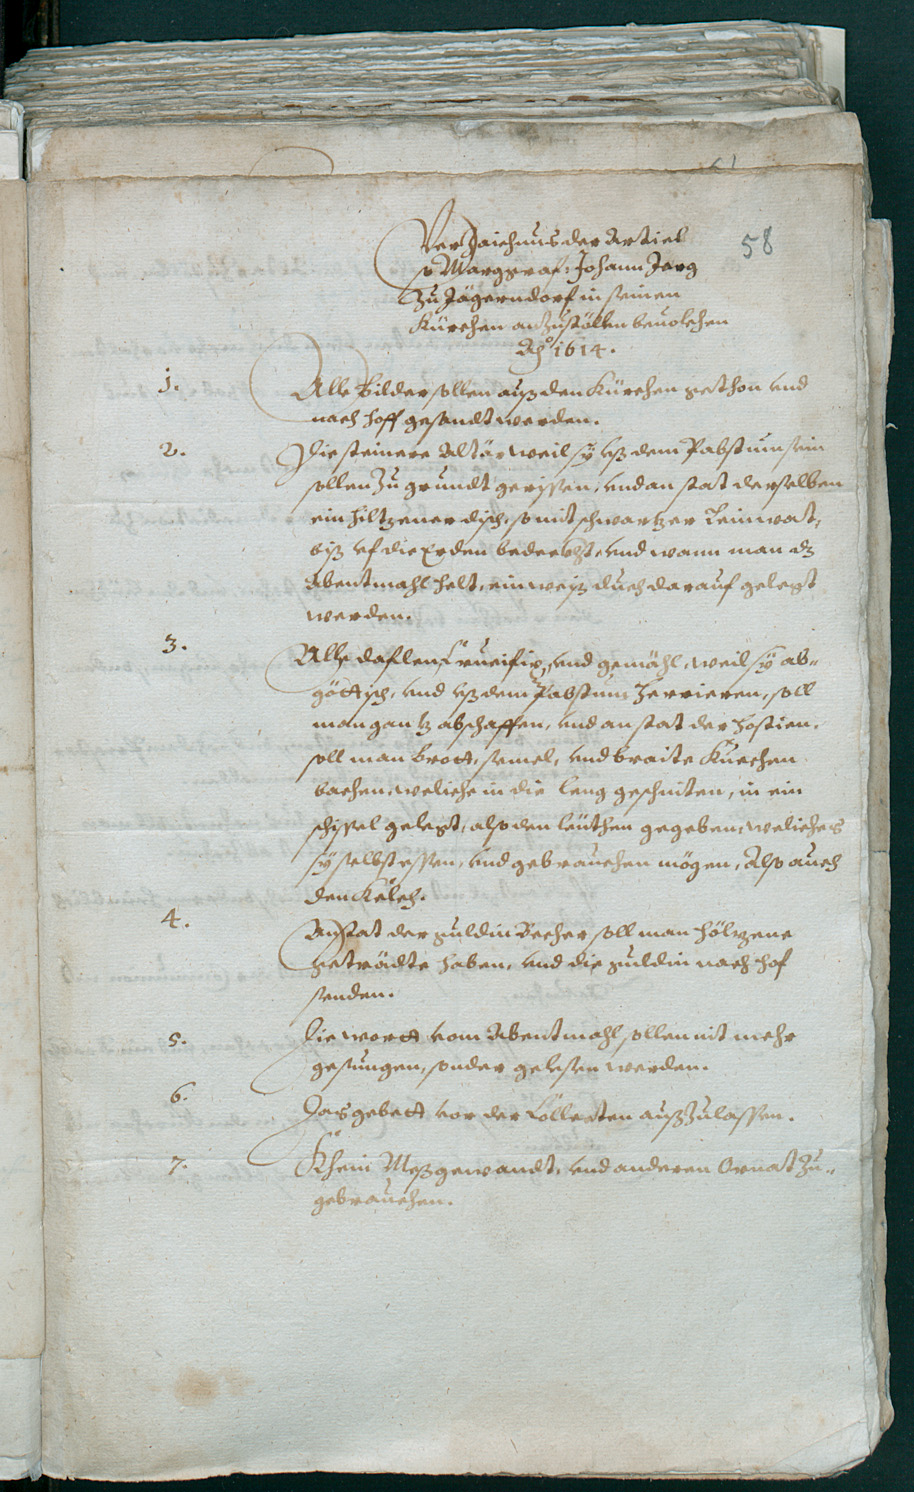 61
58
Verzaichnus der Articl
so Marggraf: Johann Jerg
zu Jägerndorf in seinen
Kürchen anzustöllen beuolchen
Aō 1614.
1. Alle Bilder sollen auß den Kürchen gethon vnd
nach hoff gesandt werden.
2. Die steinere Altär weil sÿ vß dem Pabstum sein
sollen zu grundt gerissen, vnd an stat derselben
ein hiltzener disch, so mit schwartzer Leinwat,
biß vf die Erden bedeckht, vnd wann man dz
Abentmahl helt, ein weiß duch darauf gelegt
werden.
3. Alle daflen Crucifix, vnd gemähl, weil sÿ ab-
göttisch, vnd vß dem Pabstum herrieren, soll
man gantz abschaffen, vnd an stat der Hostien.
soll man brott, semel, vnd braite Kuechen
bachen, weliche in die leng geschniten, in ein
schissel gelegt, also den leüthen gegeben, weliches
sÿ selbst essen, vnd gebrauchen mögen, Also auch
den Kelch.
4. Anstat der guldin Becher soll man höltzene
geträdte haben, vnd die guldin nach hof
senden.
5. Die wortt vom Abentmahl sollen nit mehr
gesungen, sonder gelesen werden.
6. Das gebett vor der Collecten auß zulassen.
7. Khein Meßgewandt, vnd anderen Ornat zu-
gebrauchen.